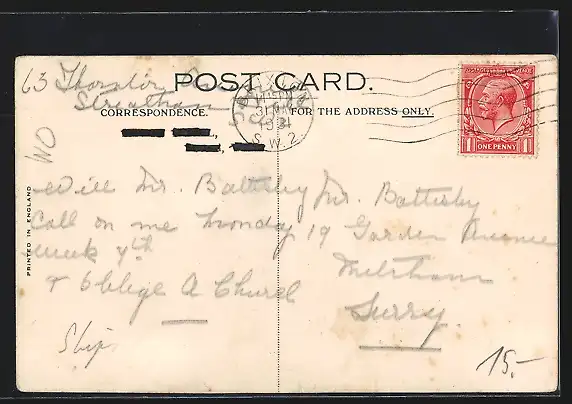 63 Thornton Ave
Streatham
POST CARD.
CORRESPONDENCE.
FOR THE ADDRESS ONLY.
BRIXTON
S.W.2.
ONE PENNY
NO
PRINTED IN ENGLAND
Will Mr. Battersby
Call on me Monday
week 7th
& Oblige A Church
Mr. Battersby
19 Garden Avenue
Surry.
Ships
15.-